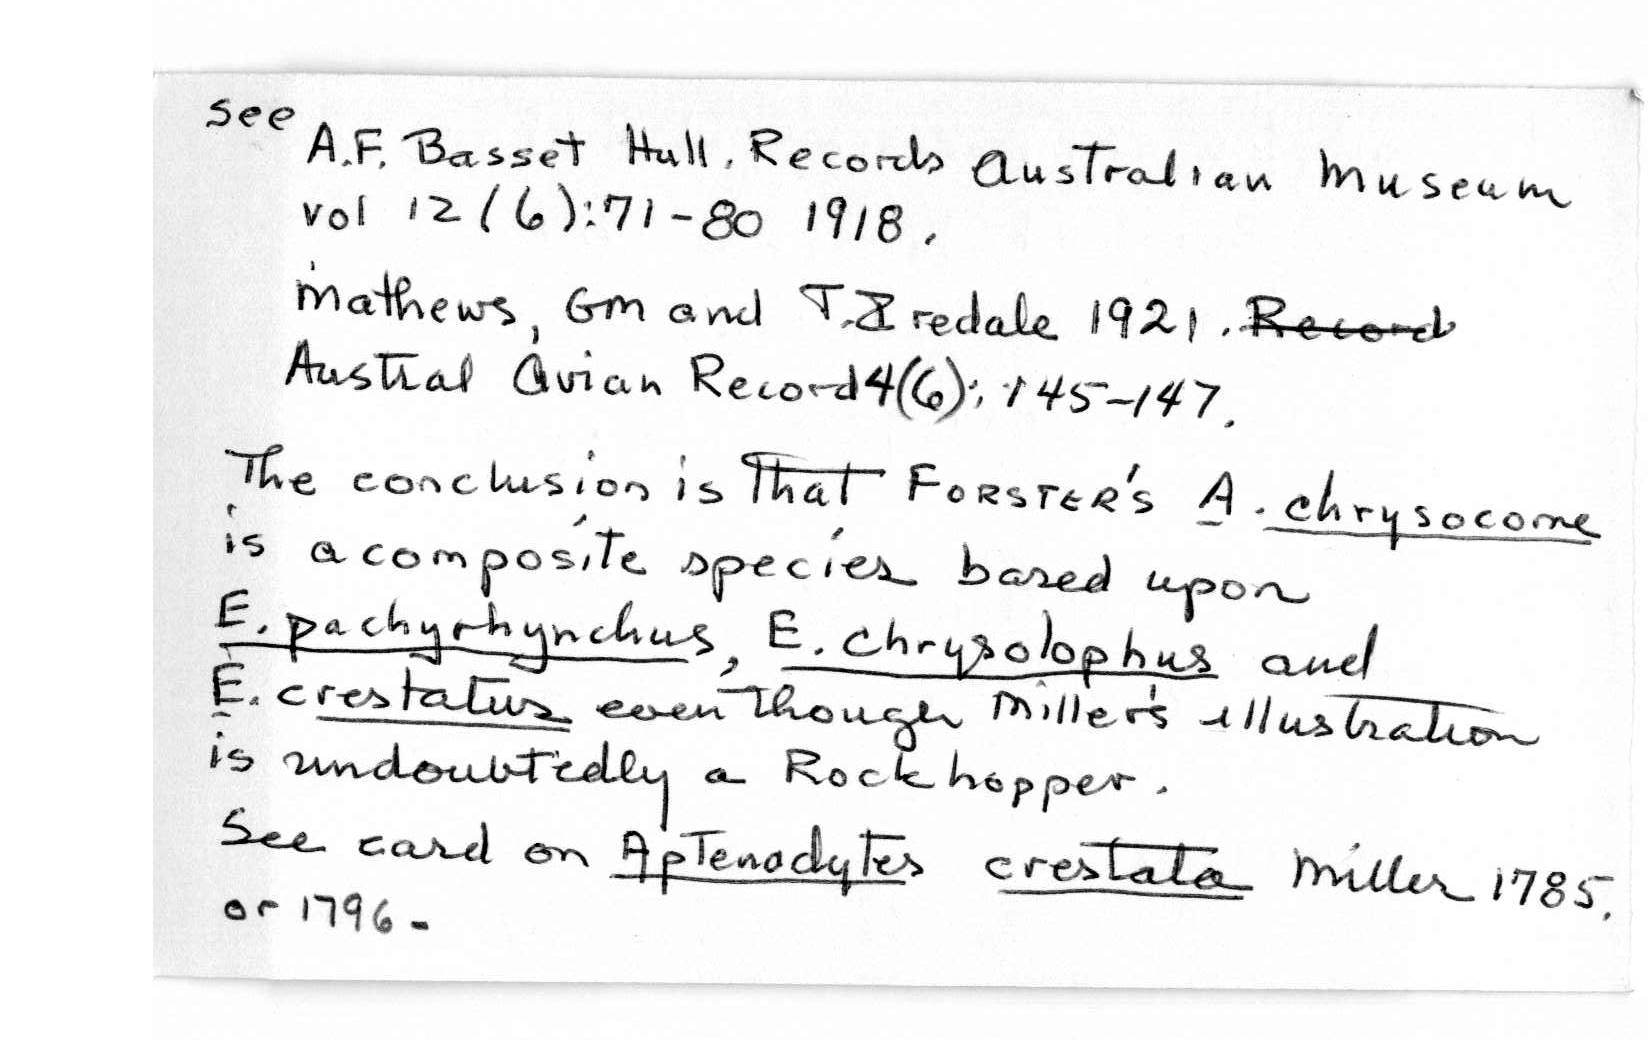 see
A.F. Basset Hull. Records Australian Museum
vol 12(6):71-80 1918.
Mathews, GM and T. Iredale 1921. Record
Austral Avian Record 4(6): 145-147.
The conclusion is that FORSTER'S A. chrysocome
is a composite species based upon
E. pachyrhynchus, E. chrysolophus and
E. crestatus even though Miller's illustration
is undoubtedly a Rockhopper.
See card on Aptenodytes crestata Miller 1785.
or 1796-